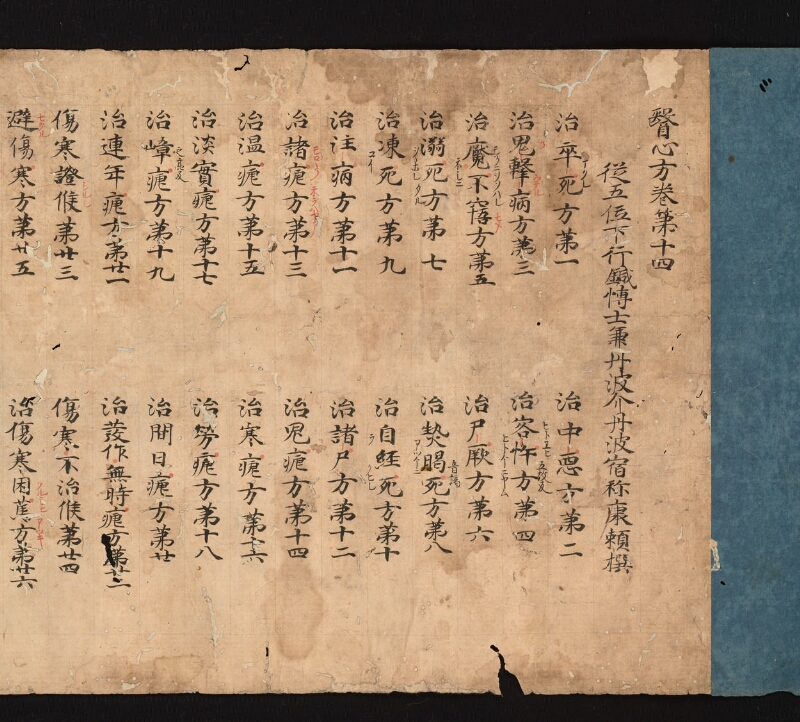 醫心方卷第十四
從五位下行鍼博士兼丹波介丹波宿祢康頼撰
治卒死方第一 治中惡方第二
治鬼擊病方第三 治客忤方第四
治魘不寤方第五 治尸厥方第六
治溺死方第七 治熱暍死方第八
治凍死方第九 治自經死方第十
治注病方第十一 治諸尸方第十二
治諸瘧方第十三 治鬼瘧方第十四
治温瘧方第十五 治寒瘧方第十六
治淡實瘧方第十七 治勞瘧方第十八
治嶂瘧方第十九 治間日瘧方第廿
治連年瘧方第廿一 治發作無時瘧方第廿二
傷寒證候第廿三 傷寒不治候第廿四
避傷寒方第廿五 治傷寒困篤方第廿六